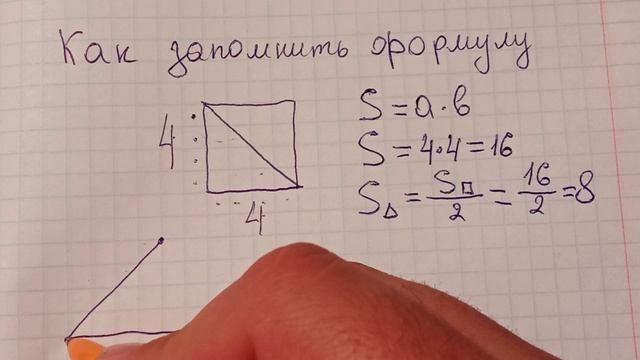 Как запомнить формулу
4
4
S = a · b
S = 4·4 = 16
S△ = S□/2 = 16/2 = 8